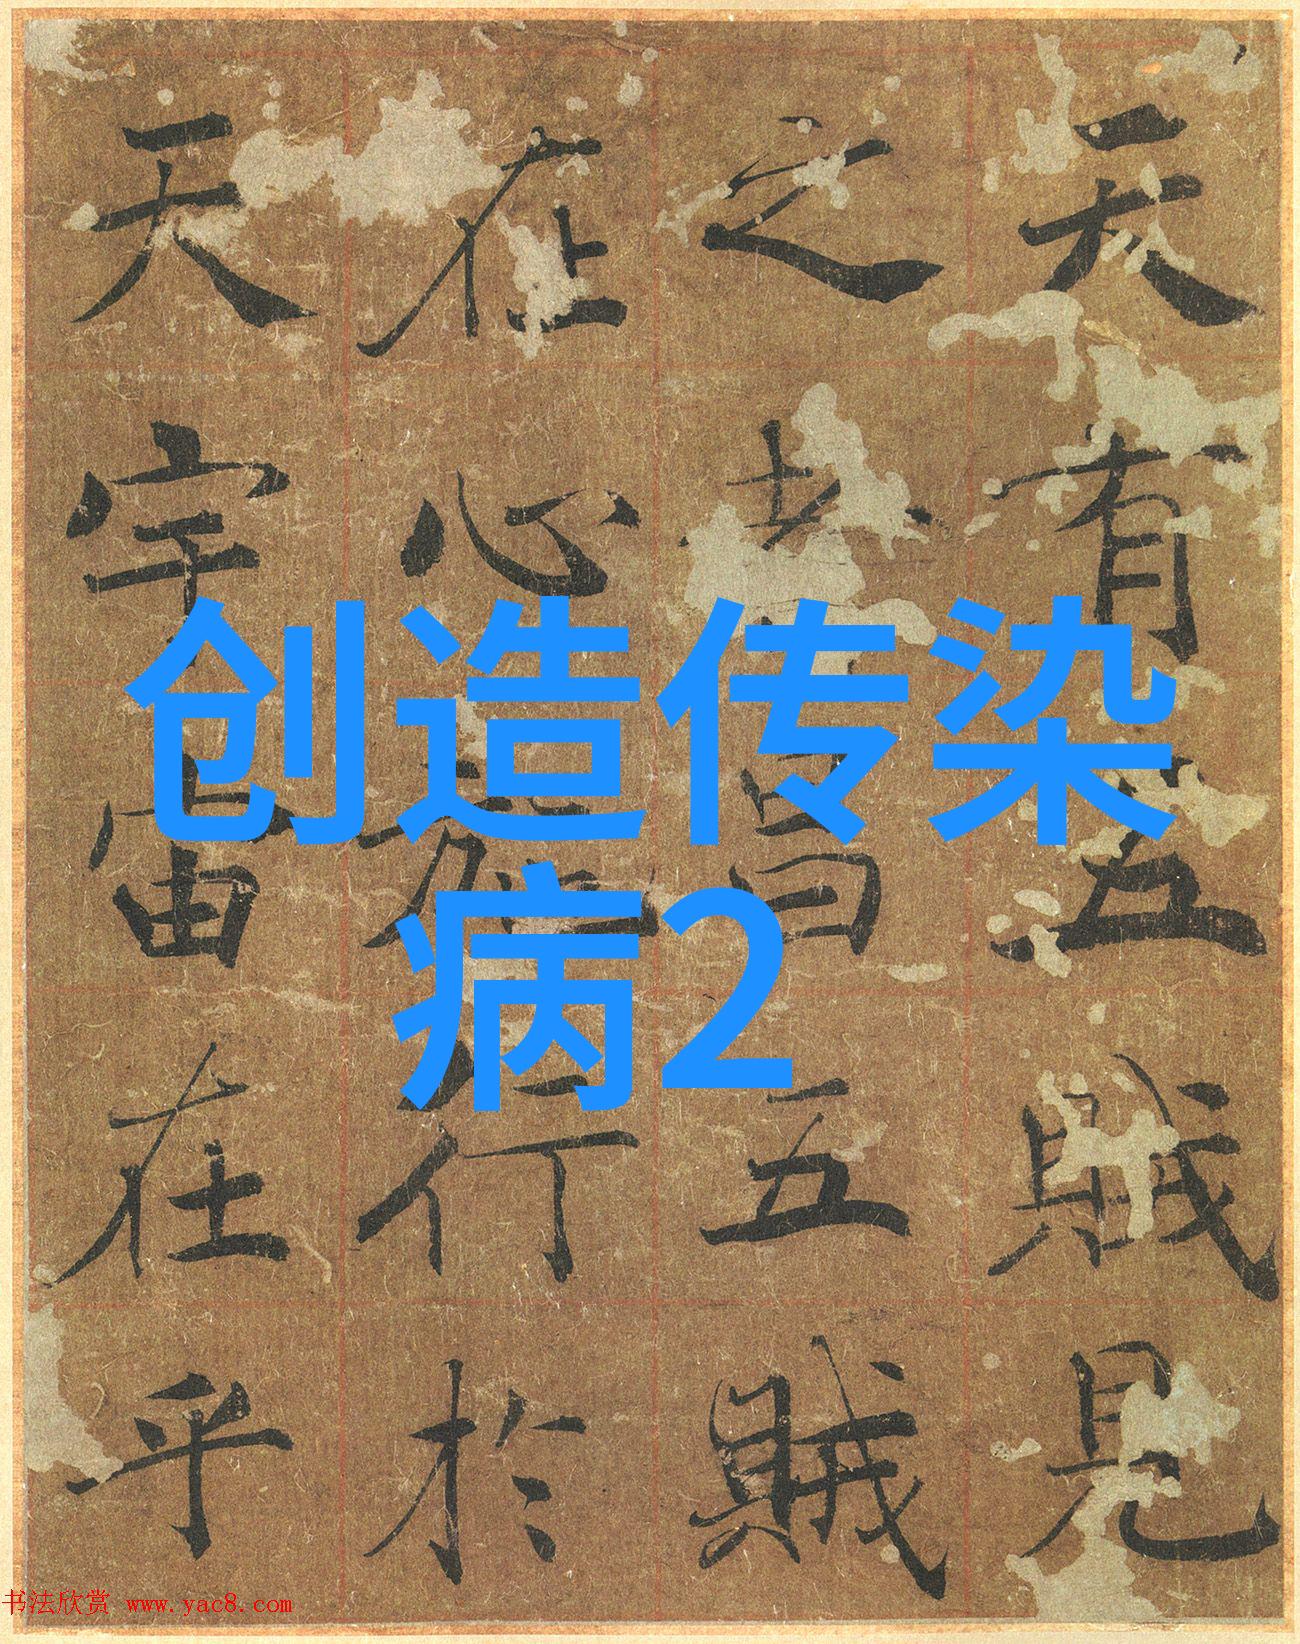 天有五賊見
之者昌五賊
在心施行於
天宇宙在乎
创造传染
病2
书法欣赏 www.yac8.com